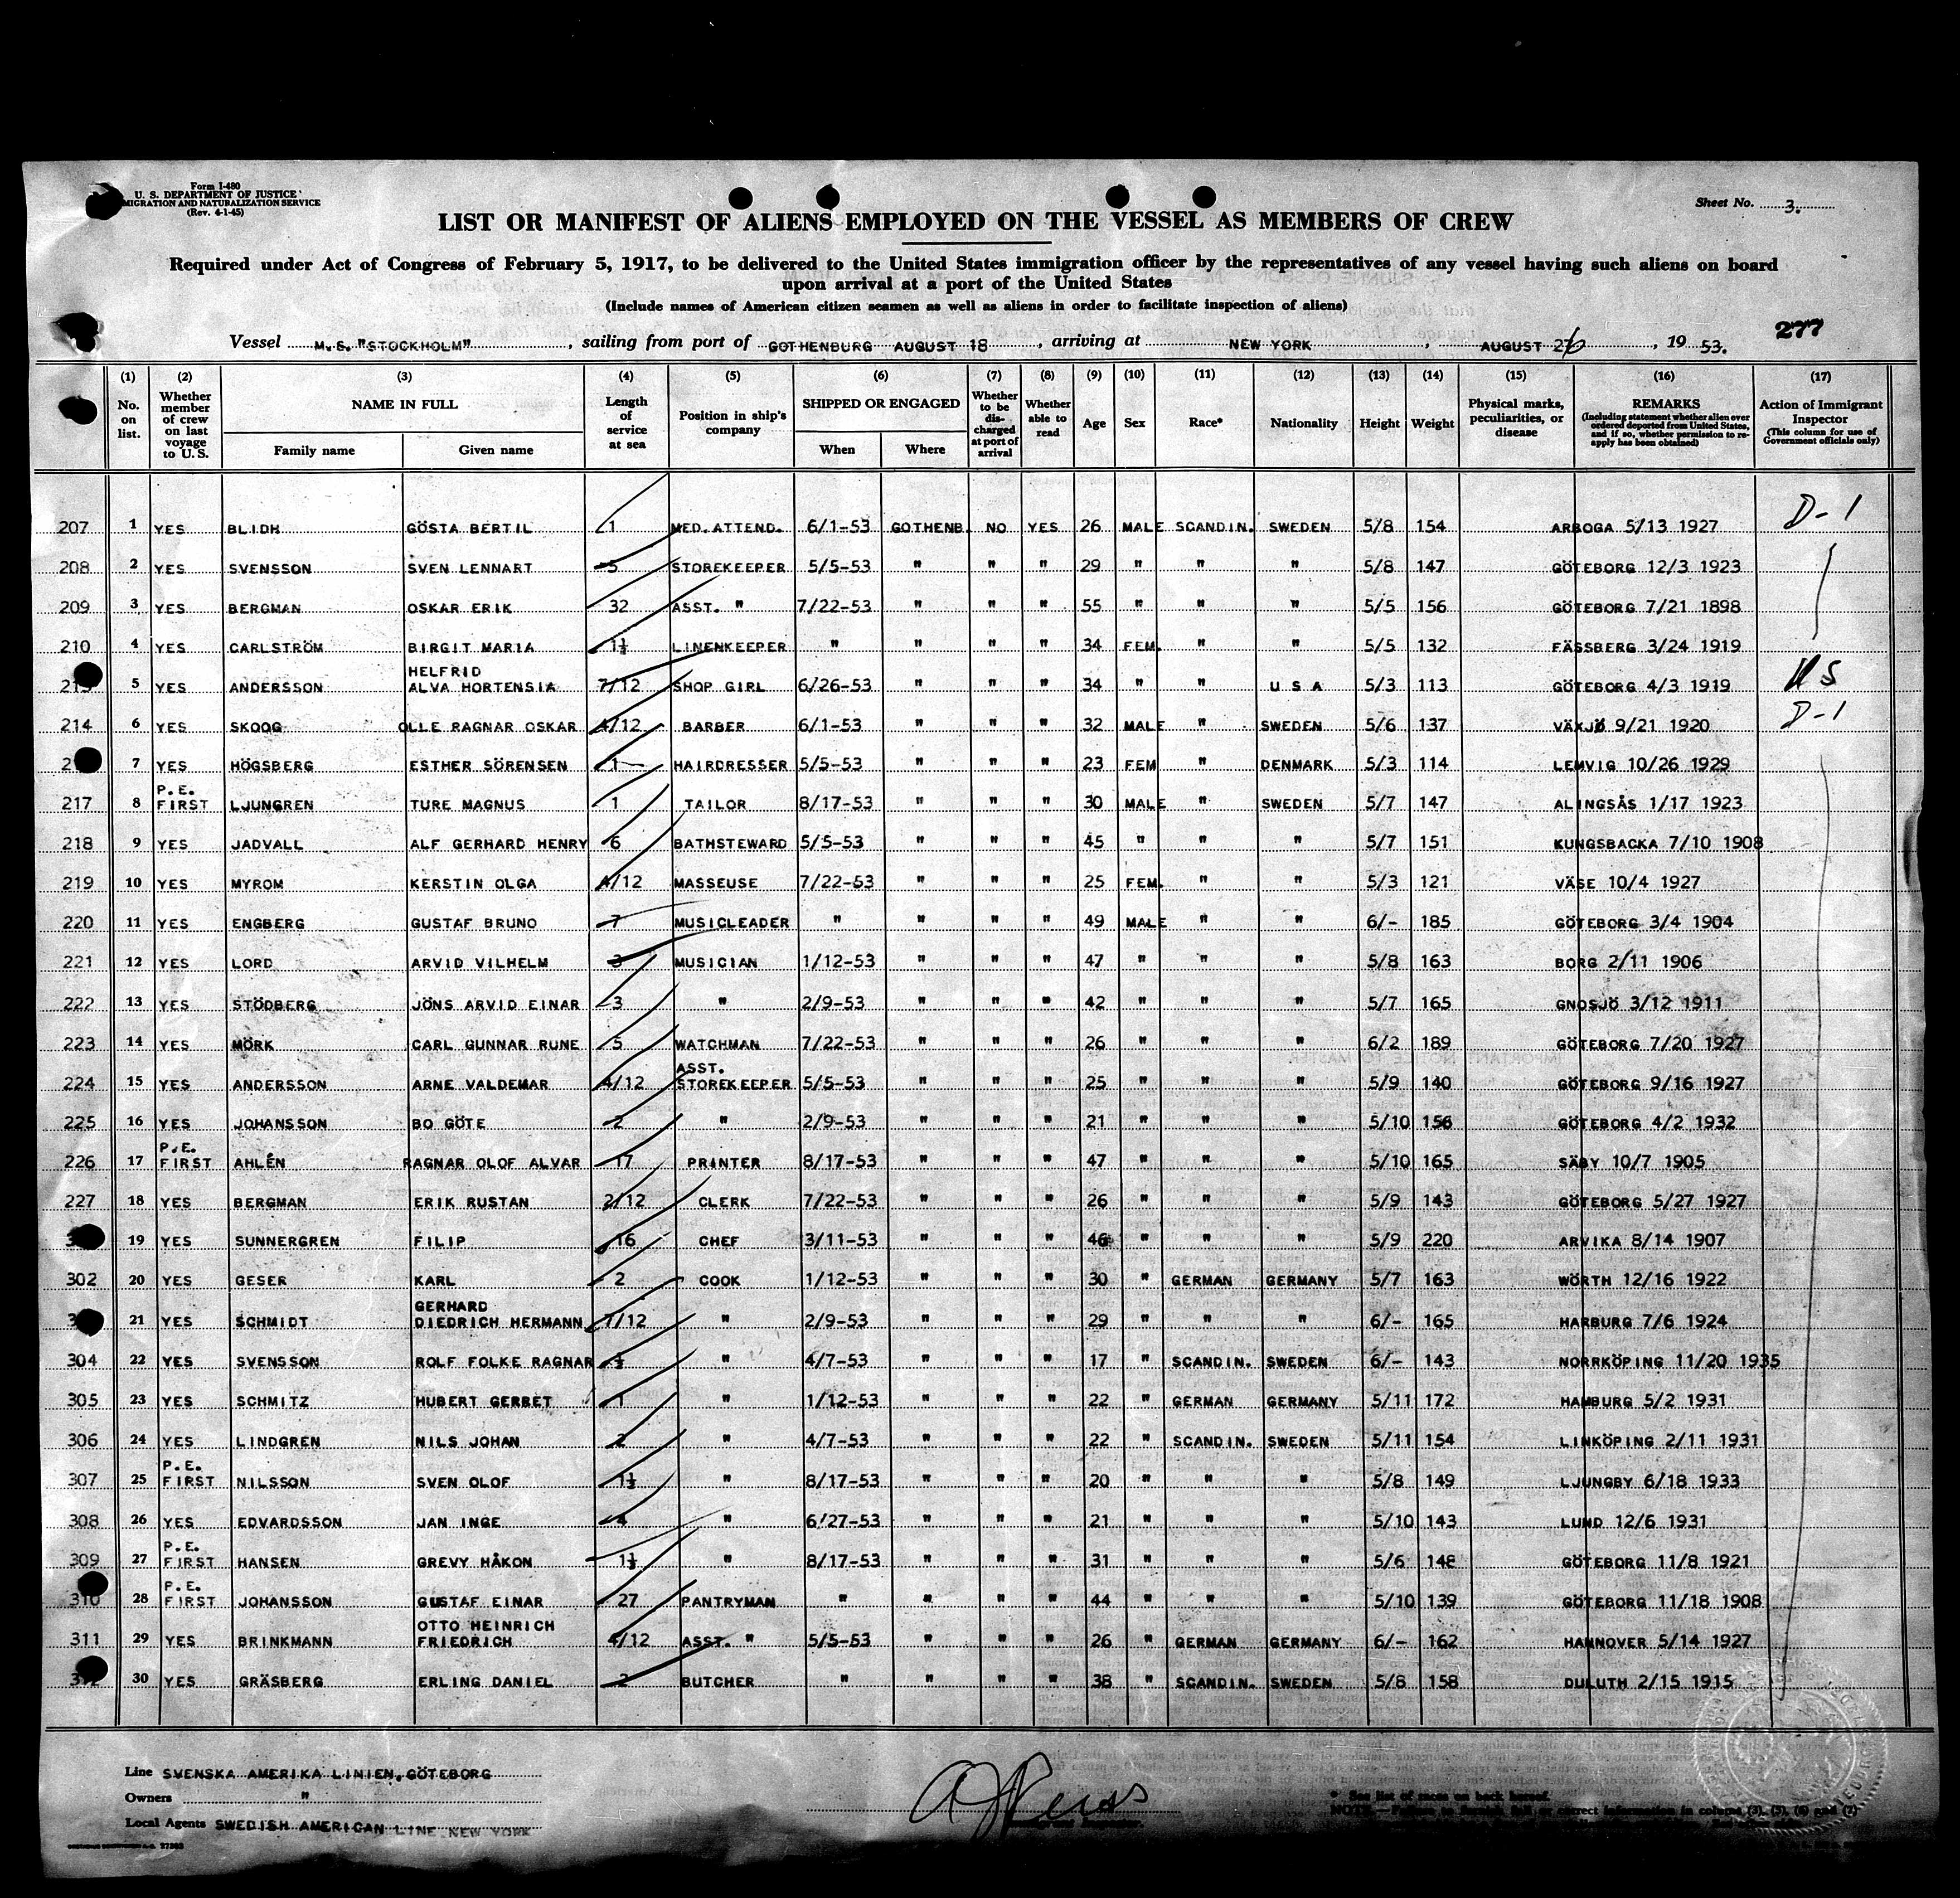 Form I-480
U. S. DEPARTMENT OF JUSTICE
MIGRATION AND NATURALIZATION SERVICE
(Rev. 4-1-45)
Sheet No. 3.
LIST OR MANIFEST OF ALIENS EMPLOYED ON THE VESSEL AS MEMBERS OF CREW
Required under Act of Congress of February 5, 1917, to be delivered to the United States immigration officer by the representatives of any vessel having such aliens on board
upon arrival at a port of the United States
(Include names of American citizen seamen as well as aliens in order to facilitate inspection of aliens)
277
Vessel M.S. "STOCKHOLM", sailing from port of GOTHENBURG AUGUST 18, arriving at NEW YORK, AUGUST 26, 19 53.
(1) No. on list. (2) Whether member of crew on last voyage to U. S. (3) NAME IN FULL Family name Given name (4) Length of service at sea (5) Position in ship's company (6) SHIPPED OR ENGAGED When Where (7) Whether to be discharged at port of arrival (8) Whether able to read (9) Age (10) Sex (11) Race* (12) Nationality (13) Height (14) Weight (15) Physical marks, peculiarities, or disease (16) REMARKS (Including statement whether alien ever ordered deported from United States, and if so, whether permission to re-apply has been obtained) (17) Action of Immigrant Inspector (This column for use of Government officials only)
207 1 YES BLIDH GÖSTA BERTIL 1 MED. ATTEND. 6/1-53 GOTHENB. NO YES 26 MALE SCANDIN. SWEDEN 5/8 154 ARBOGA 5/13 1927 D-1
208 2 YES SVENSSON SVEN LENNART 5 STOREKEEPER 5/5-53 " " " 29 " " " 5/8 147 GÖTEBORG 12/3 1923
209 3 YES BERGMAN OSKAR ERIK 32 ASST. " 7/22-53 " " " 55 " " " 5/5 156 GÖTEBORG 7/21 1898
210 4 YES CARLSTRÖM BIRGIT MARIA 1½ LINENKEEPER " " " " 34 FEM. " " 5/5 132 FÄSSBERG 3/24 1919
5 YES ANDERSSON HELFRID ALVA HORTENSIA 7/12 SHOP GIRL 6/26-53 " " " 34 " " U S A 5/3 113 GÖTEBORG 4/3 1919 US
214 6 YES SKOOG OLLE RAGNAR OSKAR 4/12 BARBER 6/1-53 " " " 32 MALE " SWEDEN 5/6 137 VÄXJÖ 9/21 1920 D-1
7 YES HÖGSBERG ESTHER SÖRENSEN 1 HAIRDRESSER 5/5-53 " " " 23 FEM " DENMARK 5/3 114 LEMVIG 10/26 1929
217 8 P.E. FIRST LJUNGREN TURE MAGNUS 1 TAILOR 8/17-53 " " " 30 MALE " SWEDEN 5/7 147 ALINGSÅS 1/17 1923
218 9 YES JADVALL ALF GERHARD HENRY 6 BATHSTEWARD 5/5-53 " " " 45 " " " 5/7 151 KUNGSBACKA 7/10 1908
219 10 YES MYROM KERSTIN OLGA 4/12 MASSEUSE 7/22-53 " " " 25 FEM. " " 5/3 121 VÄSE 10/4 1927
220 11 YES ENGBERG GUSTAF BRUNO 7 MUSICLEADER " " " " 49 MALE " " 6/- 185 GÖTEBORG 3/4 1904
221 12 YES LORD ARVID VILHELM 3 MUSICIAN 1/12-53 " " " 47 " " " 5/8 163 BORG 2/11 1906
222 13 YES STÖDBERG JÖNS ARVID EINAR 3 " 2/9-53 " " " 42 " " " 5/7 165 GNOSJÖ 3/12 1911
223 14 YES MÖRK CARL GUNNAR RUNE 5 WATCHMAN 7/22-53 " " " 26 " " " 6/2 189 GÖTEBORG 7/20 1927
224 15 YES ANDERSSON ARNE VALDEMAR 4/12 ASST. STOREKEEPER 5/5-53 " " " 25 " " " 5/9 140 GÖTEBORG 9/16 1927
225 16 YES JOHANSSON BO GÖTE 2 " 2/9-53 " " " 21 " " " 5/10 156 GÖTEBORG 4/2 1932
226 17 P.E. FIRST AHLÉN RAGNAR OLOF ALVAR 17 PRINTER 8/17-53 " " " 47 " " " 5/10 165 SÄBY 10/7 1905
227 18 YES BERGMAN ERIK RUSTAN 2/12 CLERK 7/22-53 " " " 26 " " " 5/9 143 GÖTEBORG 5/27 1927
19 YES SUNNERGREN FILIP 16 CHEF 3/11-53 " " " 46 " " " 5/9 220 ARVIKA 8/14 1907
302 20 YES GESER KARL 2 COOK 1/12-53 " " " 30 " GERMAN GERMANY 5/7 163 WÖRTH 12/16 1922
21 YES SCHMIDT GERHARD DIEDRICH HERMANN 7/12 " 2/9-53 " " " 29 " " " 6/- 165 HARBURG 7/6 1924
304 22 YES SVENSSON ROLF FOLKE RAGNAR ½ " 4/7-53 " " " 17 " SCANDIN. SWEDEN 6/- 143 NORRKÖPING 11/20 1935
305 23 YES SCHMITZ HUBERT GERRET 1 " 1/12-53 " " " 22 " GERMAN GERMANY 5/11 172 HAMBURG 5/2 1931
306 24 YES LINDGREN NILS JOHAN 2 " 4/7-53 " " " 22 " SCANDIN. SWEDEN 5/11 154 LINKÖPING 2/11 1931
307 25 P.E. FIRST NILSSON SVEN OLOF 1½ " 8/17-53 " " " 20 " " " 5/8 149 LJUNGBY 6/18 1933
308 26 YES EDVARDSSON JAN INGE 4 " 6/27-53 " " " 21 " " " 5/10 143 LUND 12/6 1931
309 27 P.E. FIRST HANSEN GREVY HÅKON 1½ " 8/17-53 " " " 31 " " " 5/6 148 GÖTEBORG 11/8 1921
310 28 P.E. FIRST JOHANSSON GUSTAF EINAR 27 PANTRYMAN " " " " 44 " " " 5/10 139 GÖTEBORG 11/18 1908
311 29 YES BRINKMANN OTTO HEINRICH FRIEDRICH 4/12 ASST. " 5/5-53 " " " 26 " GERMAN GERMANY 6/- 162 HANNOVER 5/14 1927
312 30 YES GRÄSBERG ERLING DANIEL 2 BUTCHER " " " " 38 " SCANDIN. SWEDEN 5/8 158 DULUTH 2/15 1915
Line SVENSKA AMERIKA LINIEN, GÖTEBORG
Owners "
Local Agents SWEDISH AMERICAN LINE NEW YORK
* See list of races on back hereof.
NOTE.—Failure to furnish full or correct information in columns (3), (5), (6) and (7)